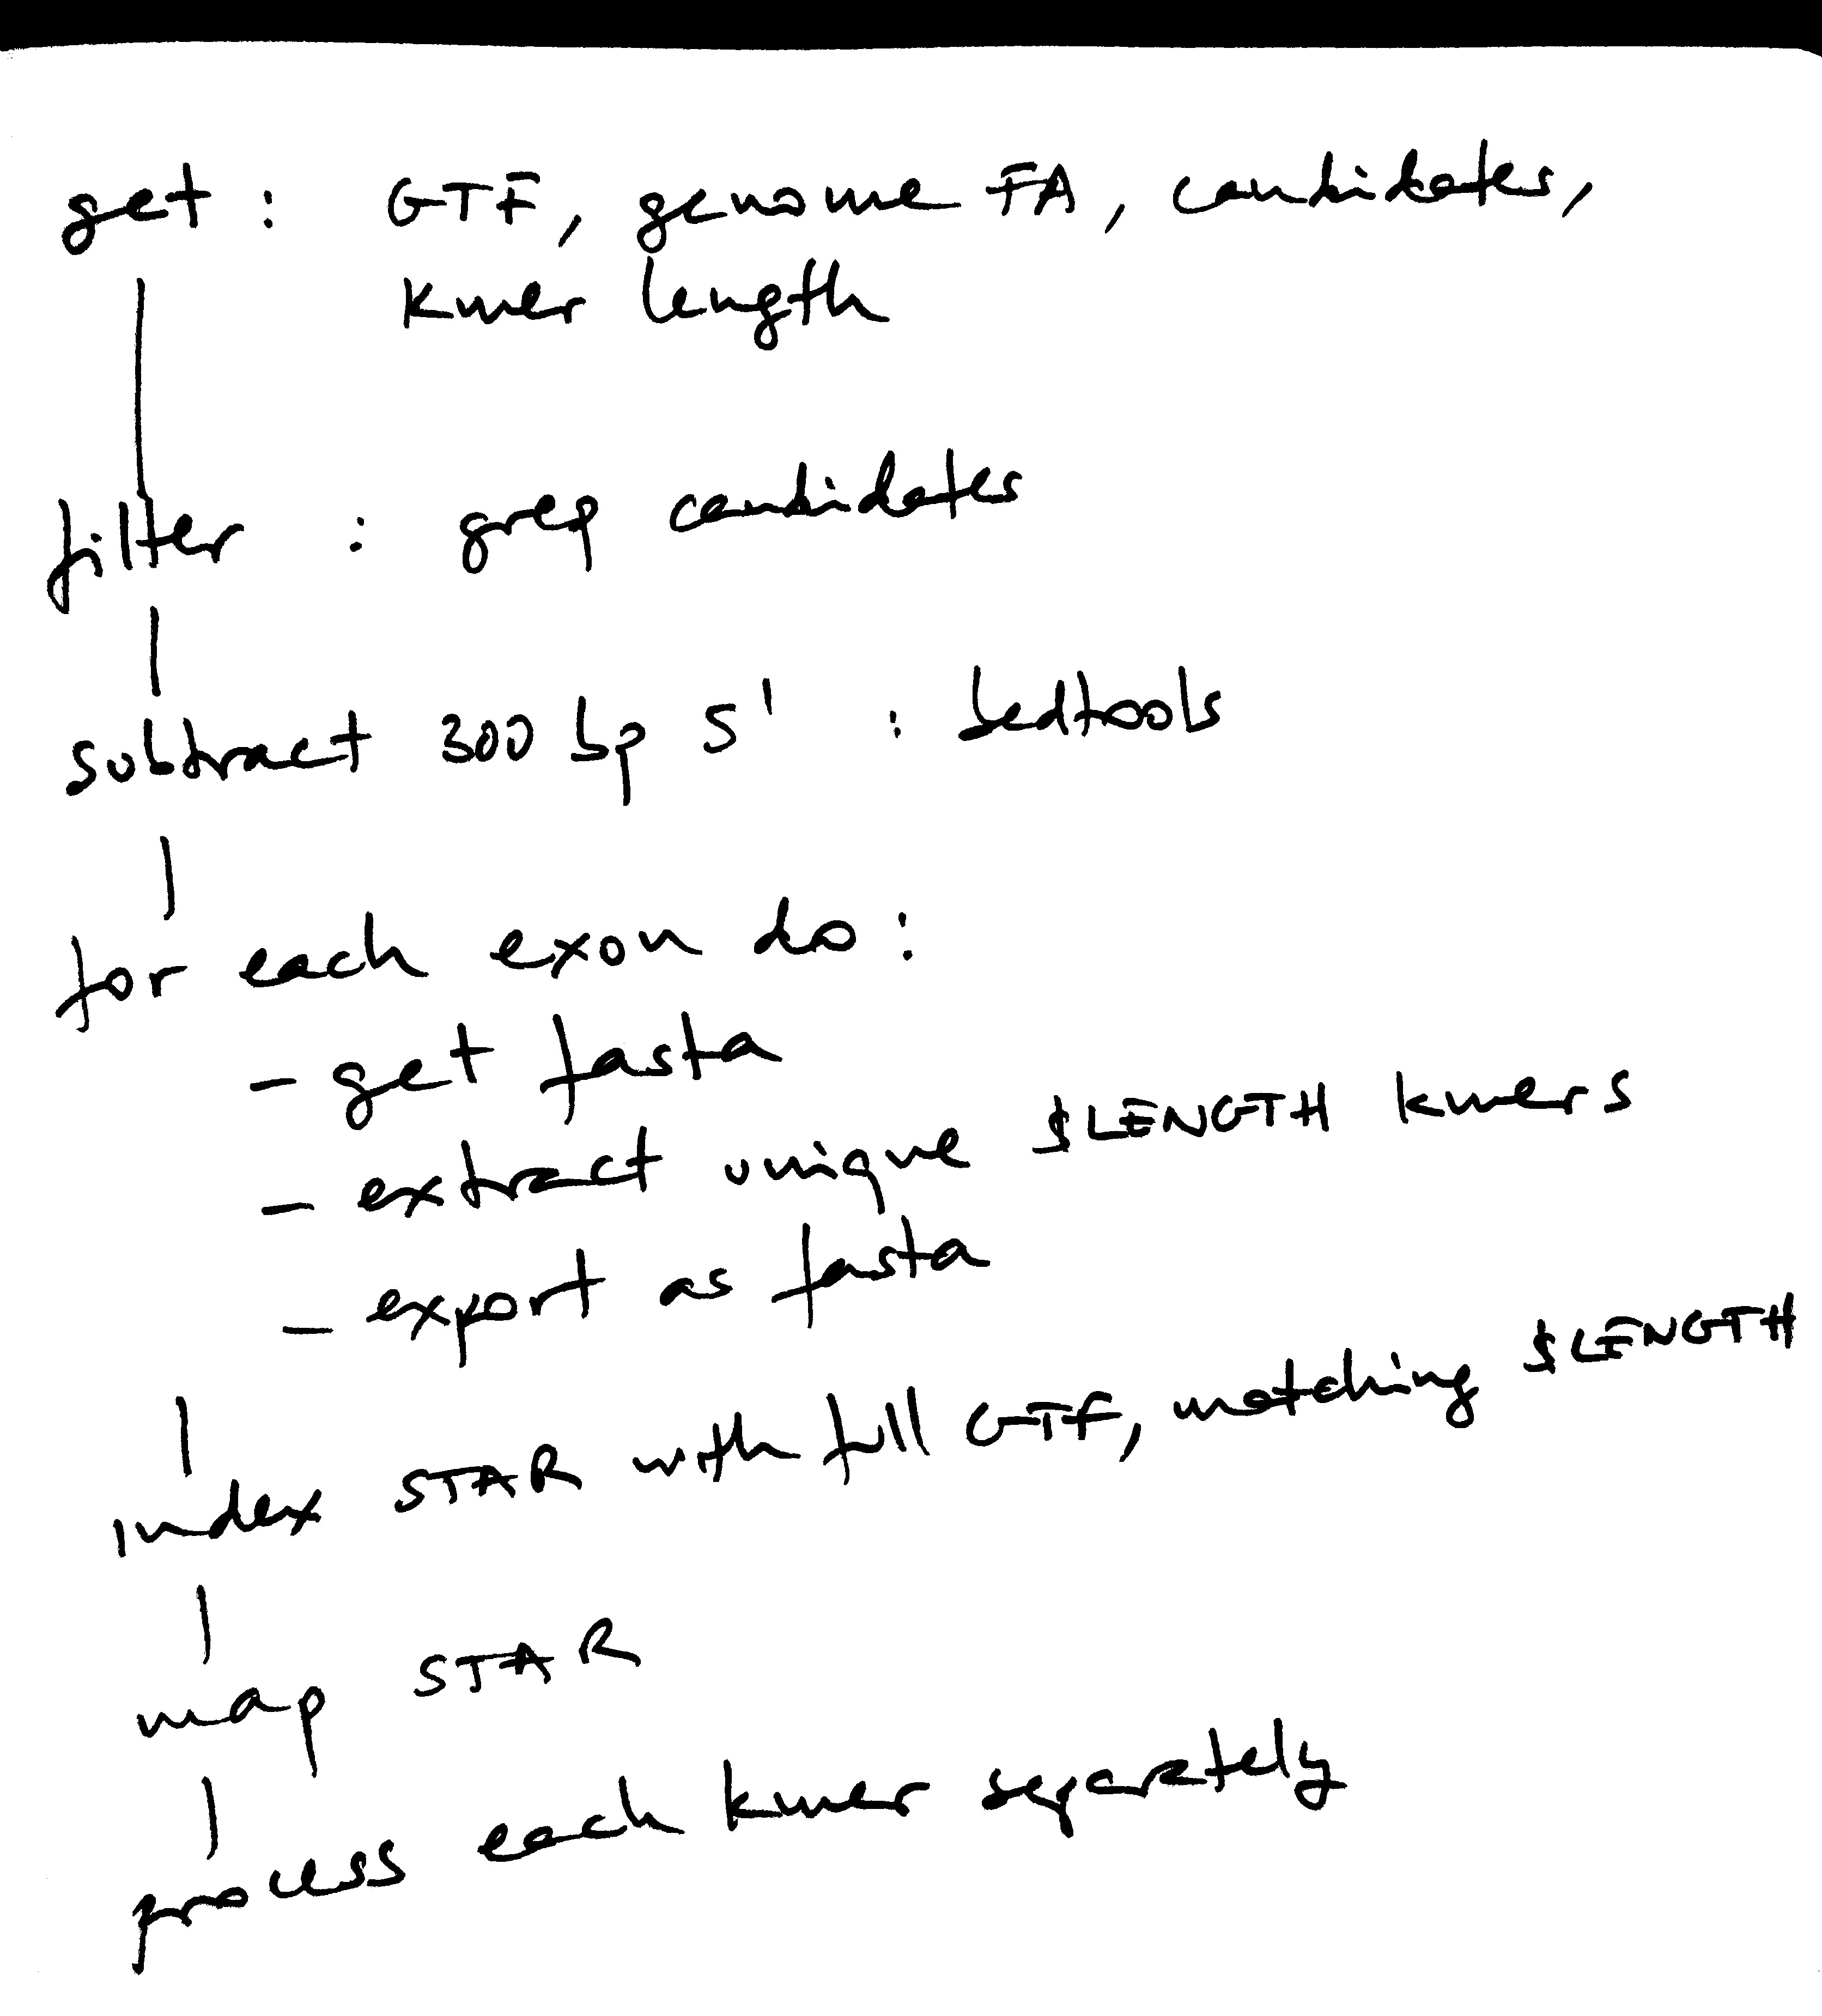 get : GTF, genome FA, candidates,
kmer length
filter : grep candidates
subtract 300 bp 5' : bedtools
for each exon do :
- get fasta
- extract unique $LENGTH kmers
- export as fasta
index STAR with full GTF, matching $LENGTH
map STAR
process each kmer separately